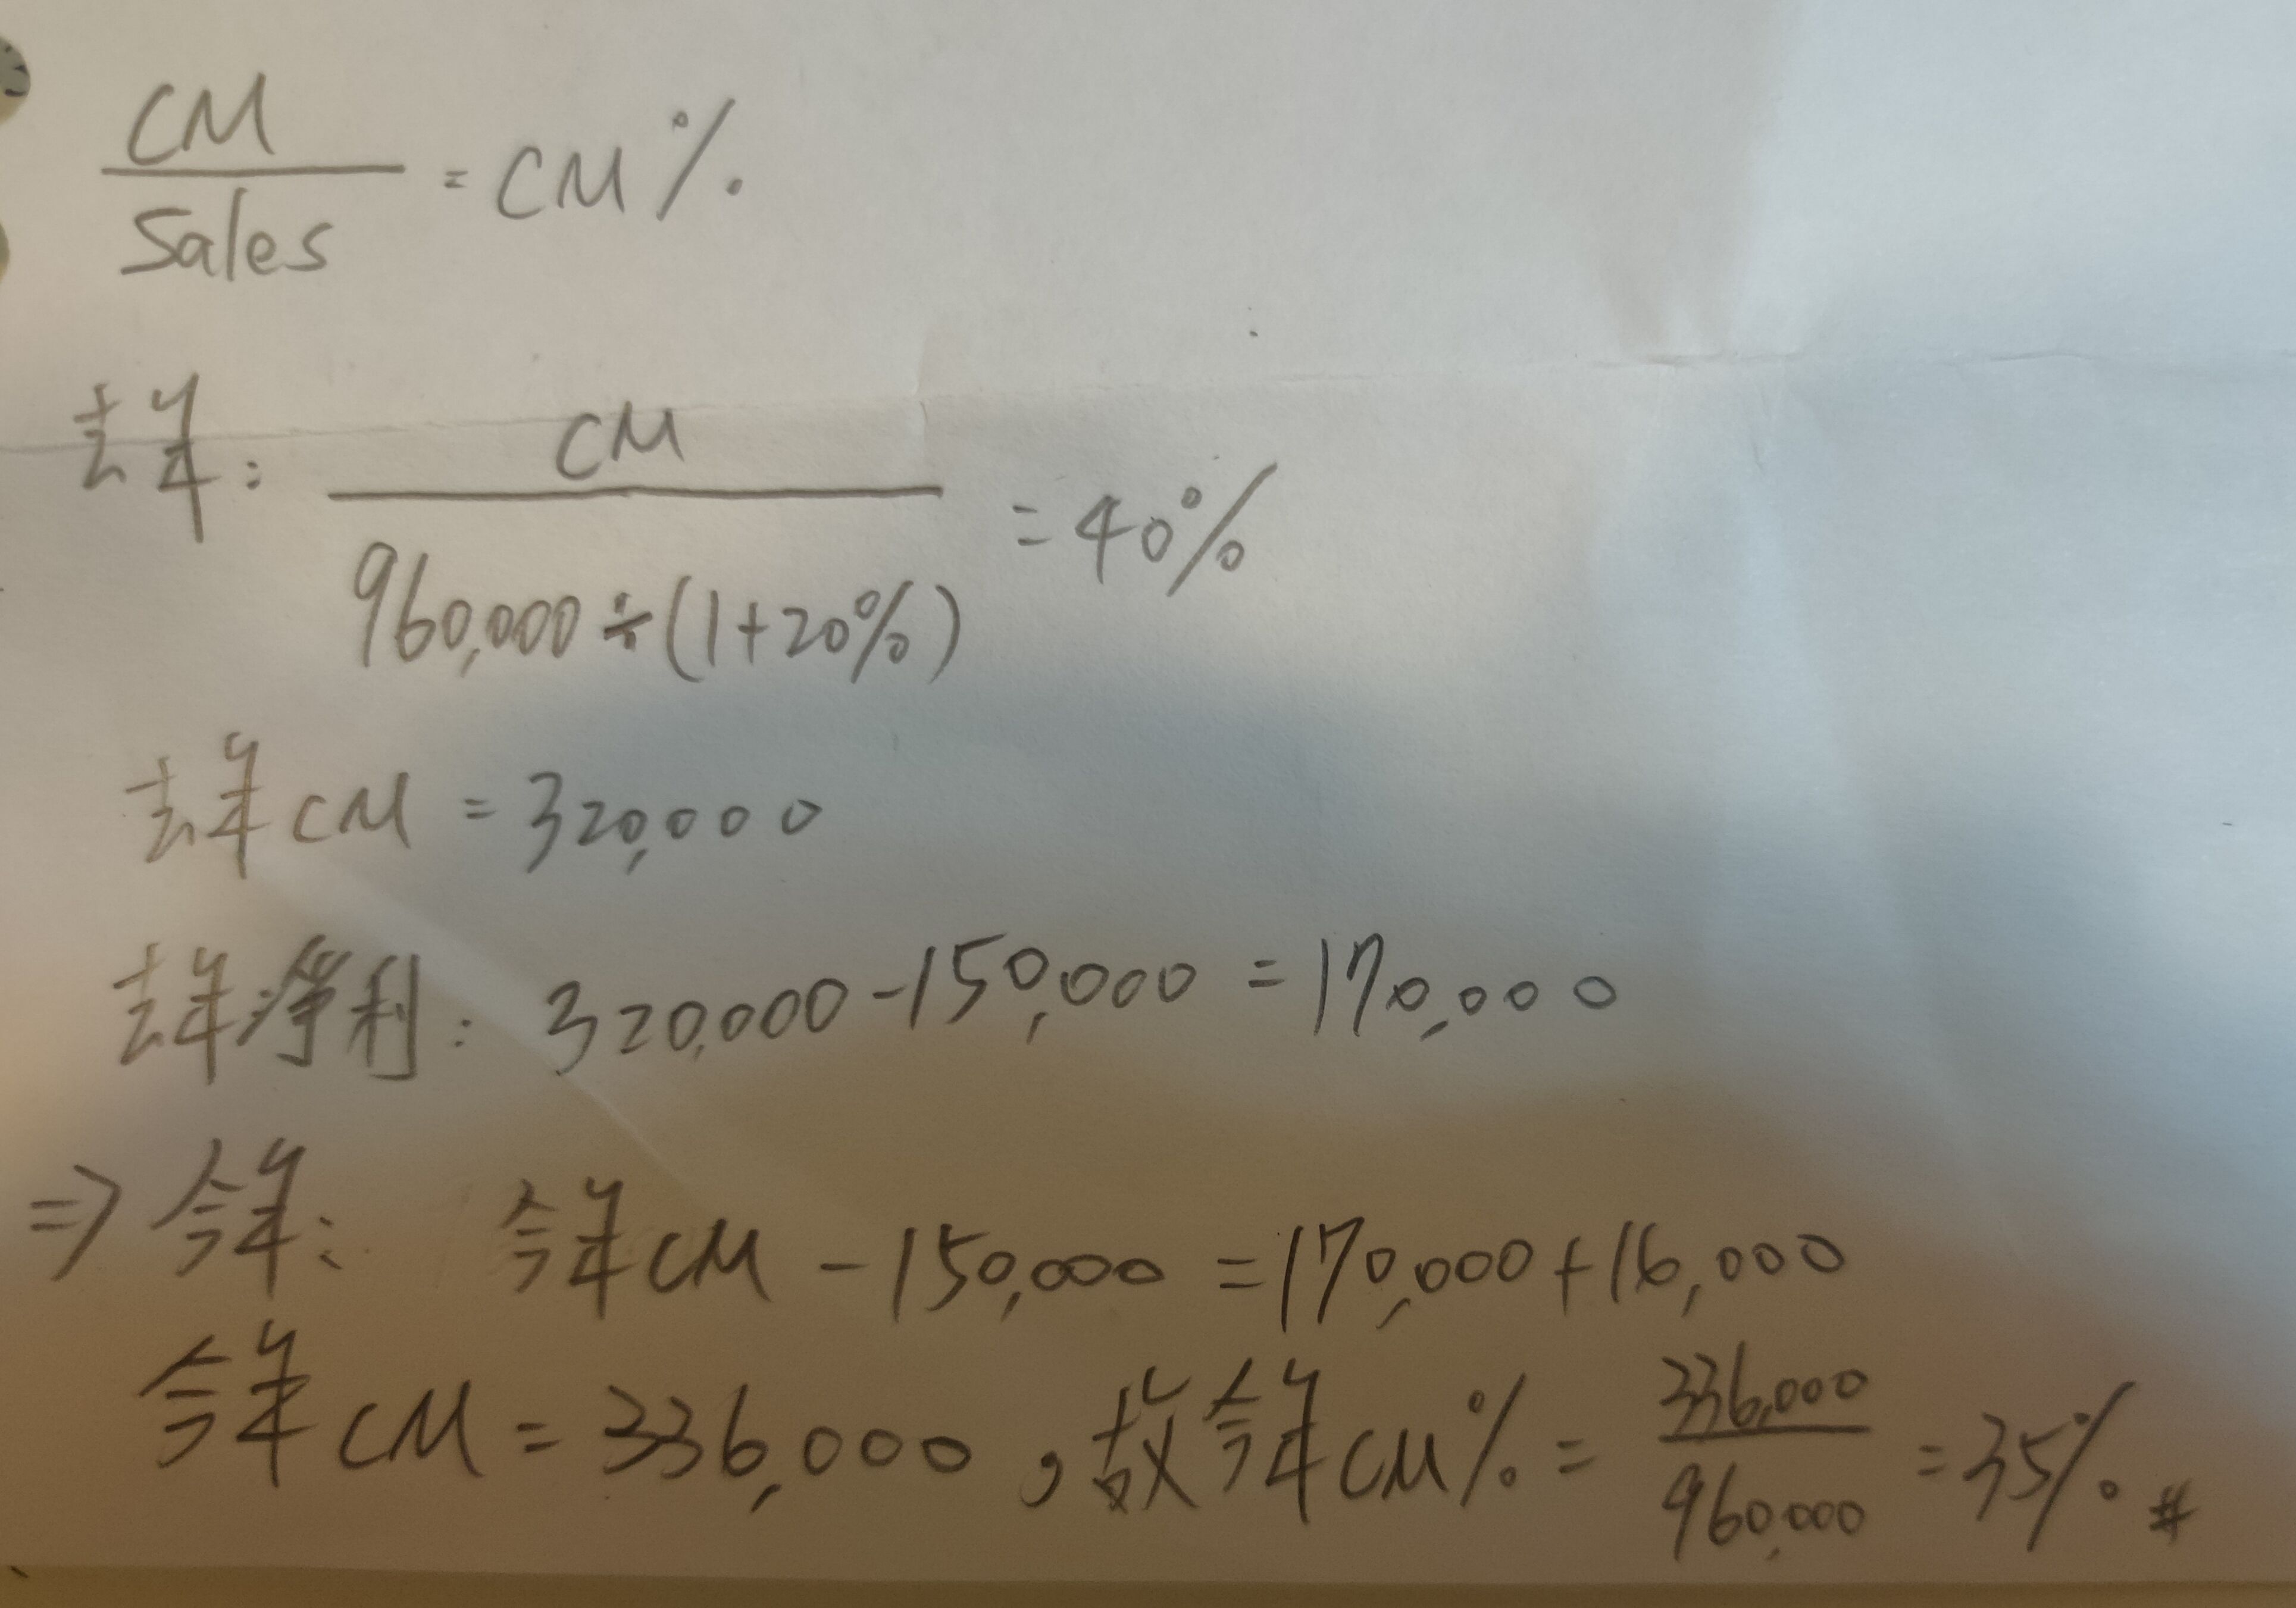 CM
Sales = CM%
去年: CM
960,000÷(1+20%) = 40%
去年CM = 320,000
去年淨利: 320,000-150,000 = 170,000
⇒ 今年: 今年CM - 150,000 = 170,000+16,000
今年CM = 336,000,故今年CM% = 336,000
960,000 = 35% #